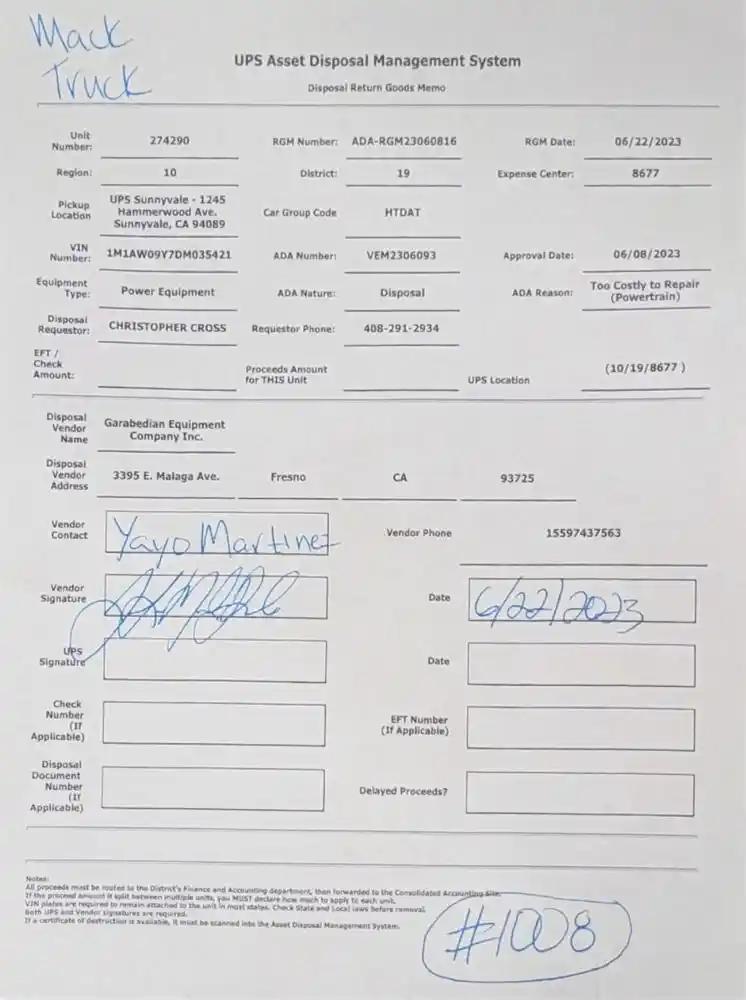 Mack
Truck
UPS Asset Disposal Management System
Disposal Return Goods Memo
Unit Number: 274290 RGM Number: ADA-RGM23060816 RGM Date: 06/22/2023
Region: 10 District: 19 Expense Center: 8677
Pickup Location UPS Sunnyvale - 1245 Hammerwood Ave. Sunnyvale, CA 94089 Car Group Code HTDAT
VIN Number: 1M1AW09Y7DM035421 ADA Number: VEM2306093 Approval Date: 06/08/2023
Equipment Type: Power Equipment ADA Nature: Disposal ADA Reason: Too Costly to Repair (Powertrain)
Disposal Requestor: CHRISTOPHER CROSS Requestor Phone: 408-291-2934
EFT / Check Amount: Proceeds Amount for THIS Unit UPS Location (10/19/8677 )
Disposal Vendor Name Garabedian Equipment Company Inc.
Disposal Vendor Address 3395 E. Malaga Ave. Fresno CA 93725
Vendor Contact Yayo Martinez Vendor Phone 15597437563
Vendor Signature Date 6/22/2023
UPS Signature Date
Check Number (If Applicable) EFT Number (If Applicable)
Disposal Document Number (If Applicable) Delayed Proceeds?
Notes:
All proceeds must be routed to the District's Finance and Accounting department, then forwarded to the Consolidated Accounting Site.
If the proceed amount is split between multiple units, you MUST declare how much to apply to each unit.
VIN plates are required to remain attached to the unit in most states. Check State and Local laws before removal.
Both UPS and Vendor signatures are required.
If a certificate of destruction is available, it must be scanned into the Asset Disposal Management System.
#1008